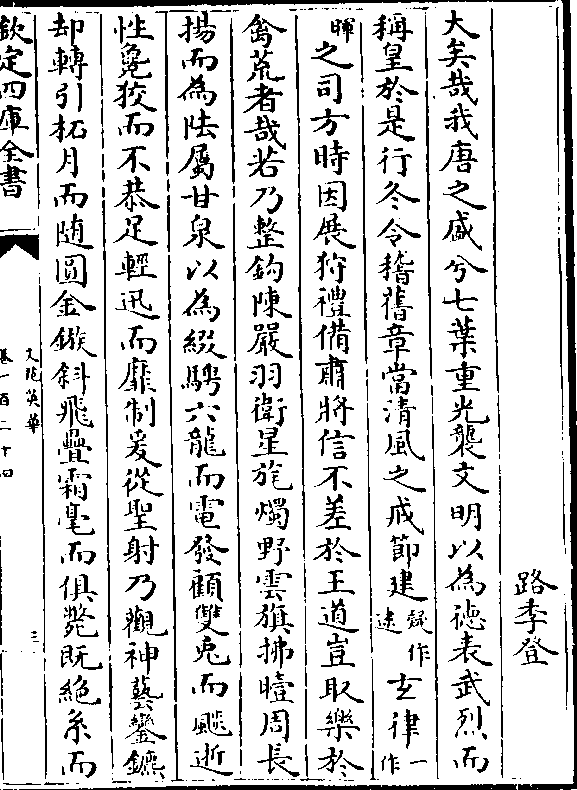 路季登
大矣哉我唐之盛兮七葉重光襲文明以為徳表武烈而
稱皇於是行冬令稽舊章當清風之戒節建疑作逮玄律一作
暉之司方時因展狩禮備肅將信不差於王道豈取樂於
禽荒者哉若乃整鈎陳嚴羽衛星旄燭野雲旗拂曀周長
揚而為阹屬甘泉以為綴騁六龍而電發顧雙兎而飈逝
性㲋狡而不恭足輕迅而靡制爰從聖射乃觀神藝鑾鑣
却轉引柘月而随圓金鏃斜飛疊霜毫而俱斃既絶系而
欽定四庫全書
文苑英華
卷一百二十四
三